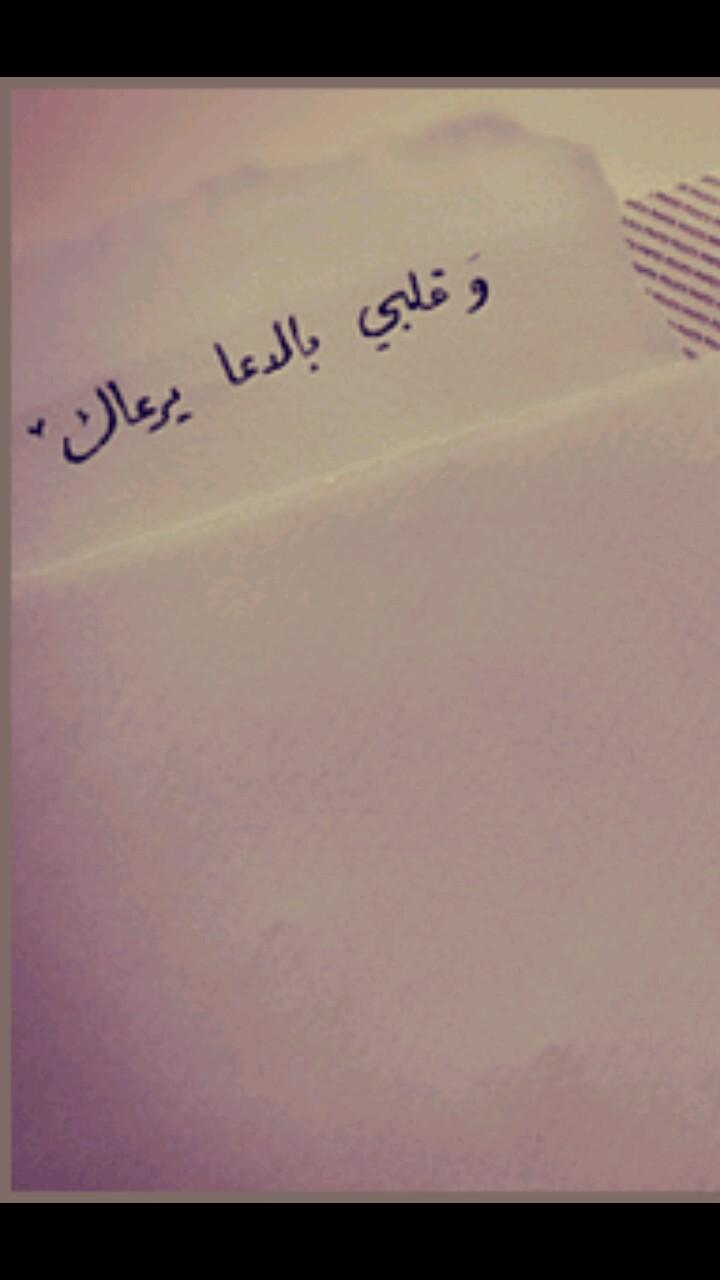 وَ قلبي بالدعا يرعاك